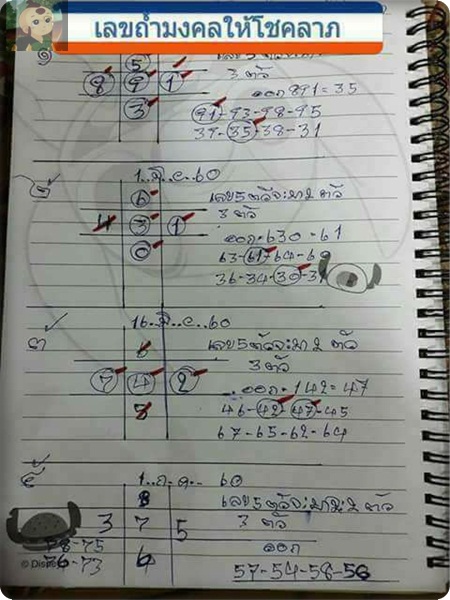 เลขถ้ำมงคลให้โชคลาภ
๑
5
เลข 5 ตัวจะมา 2 ตัว
3 ตัว
8 9 1
ออก 891 = 35
3
91-93-98-95
39-35-38-31
๒
1..มิ..ย..60
6
เลข 5 ตัวจะมา 2 ตัว
3 ตัว
4 3 1
ออก 630 = 61
0
63-61-64-60
36-34-30-31
๓
16..มิ..ย..60
6
เลข 5 ตัวจะมา 2 ตัว
3 ตัว
7 4 2
ออก 142 = 47
5
46-42-47-45
67-65-62-64
๔
1..ก..ค.. 60
8
เลข 5 ตัวจะมา 2 ตัว
3 7 5
3 ตัว
78-75
ออก
76-73
6
57-54-58-56
© Disney